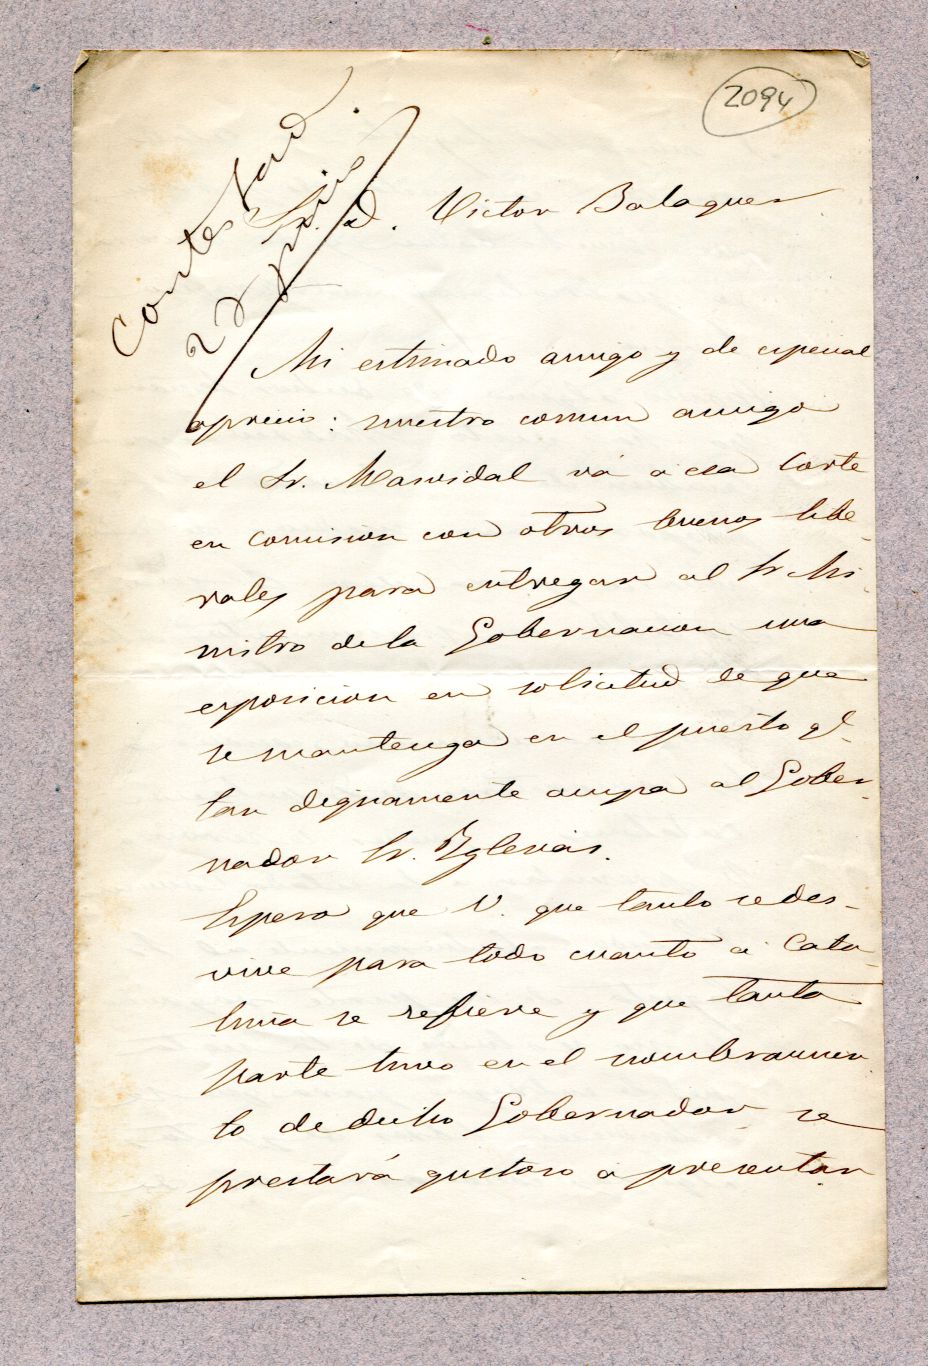 2094
Contestad.
22 junio
Sr. D. Victor Balaguer
Mi estimado amigo y de especial
aprecio: nuestro comun amigo
el Sr. Masvidal vá a esa Corte
en comision con otros buenos libe-
rales para entregar al Sr Mi-
nistro de la Gobernacion una
exposicion en solicitud de que
se mantenga en el puesto q.e
tan dignamente ocupa al Gober-
nador Sr. Yglesias.
Espero que V. que tanto se des-
vive para todo cuanto a Cata-
luña se refiere y que tanta
parte tuvo en el nombramien
to de dicho Gobernador se
prestará gustoso a presentar